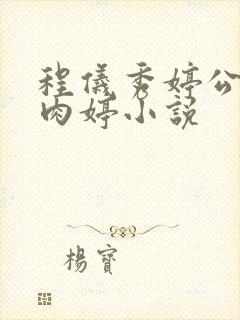 程儀秀婷公
肉婷小説
楊寶